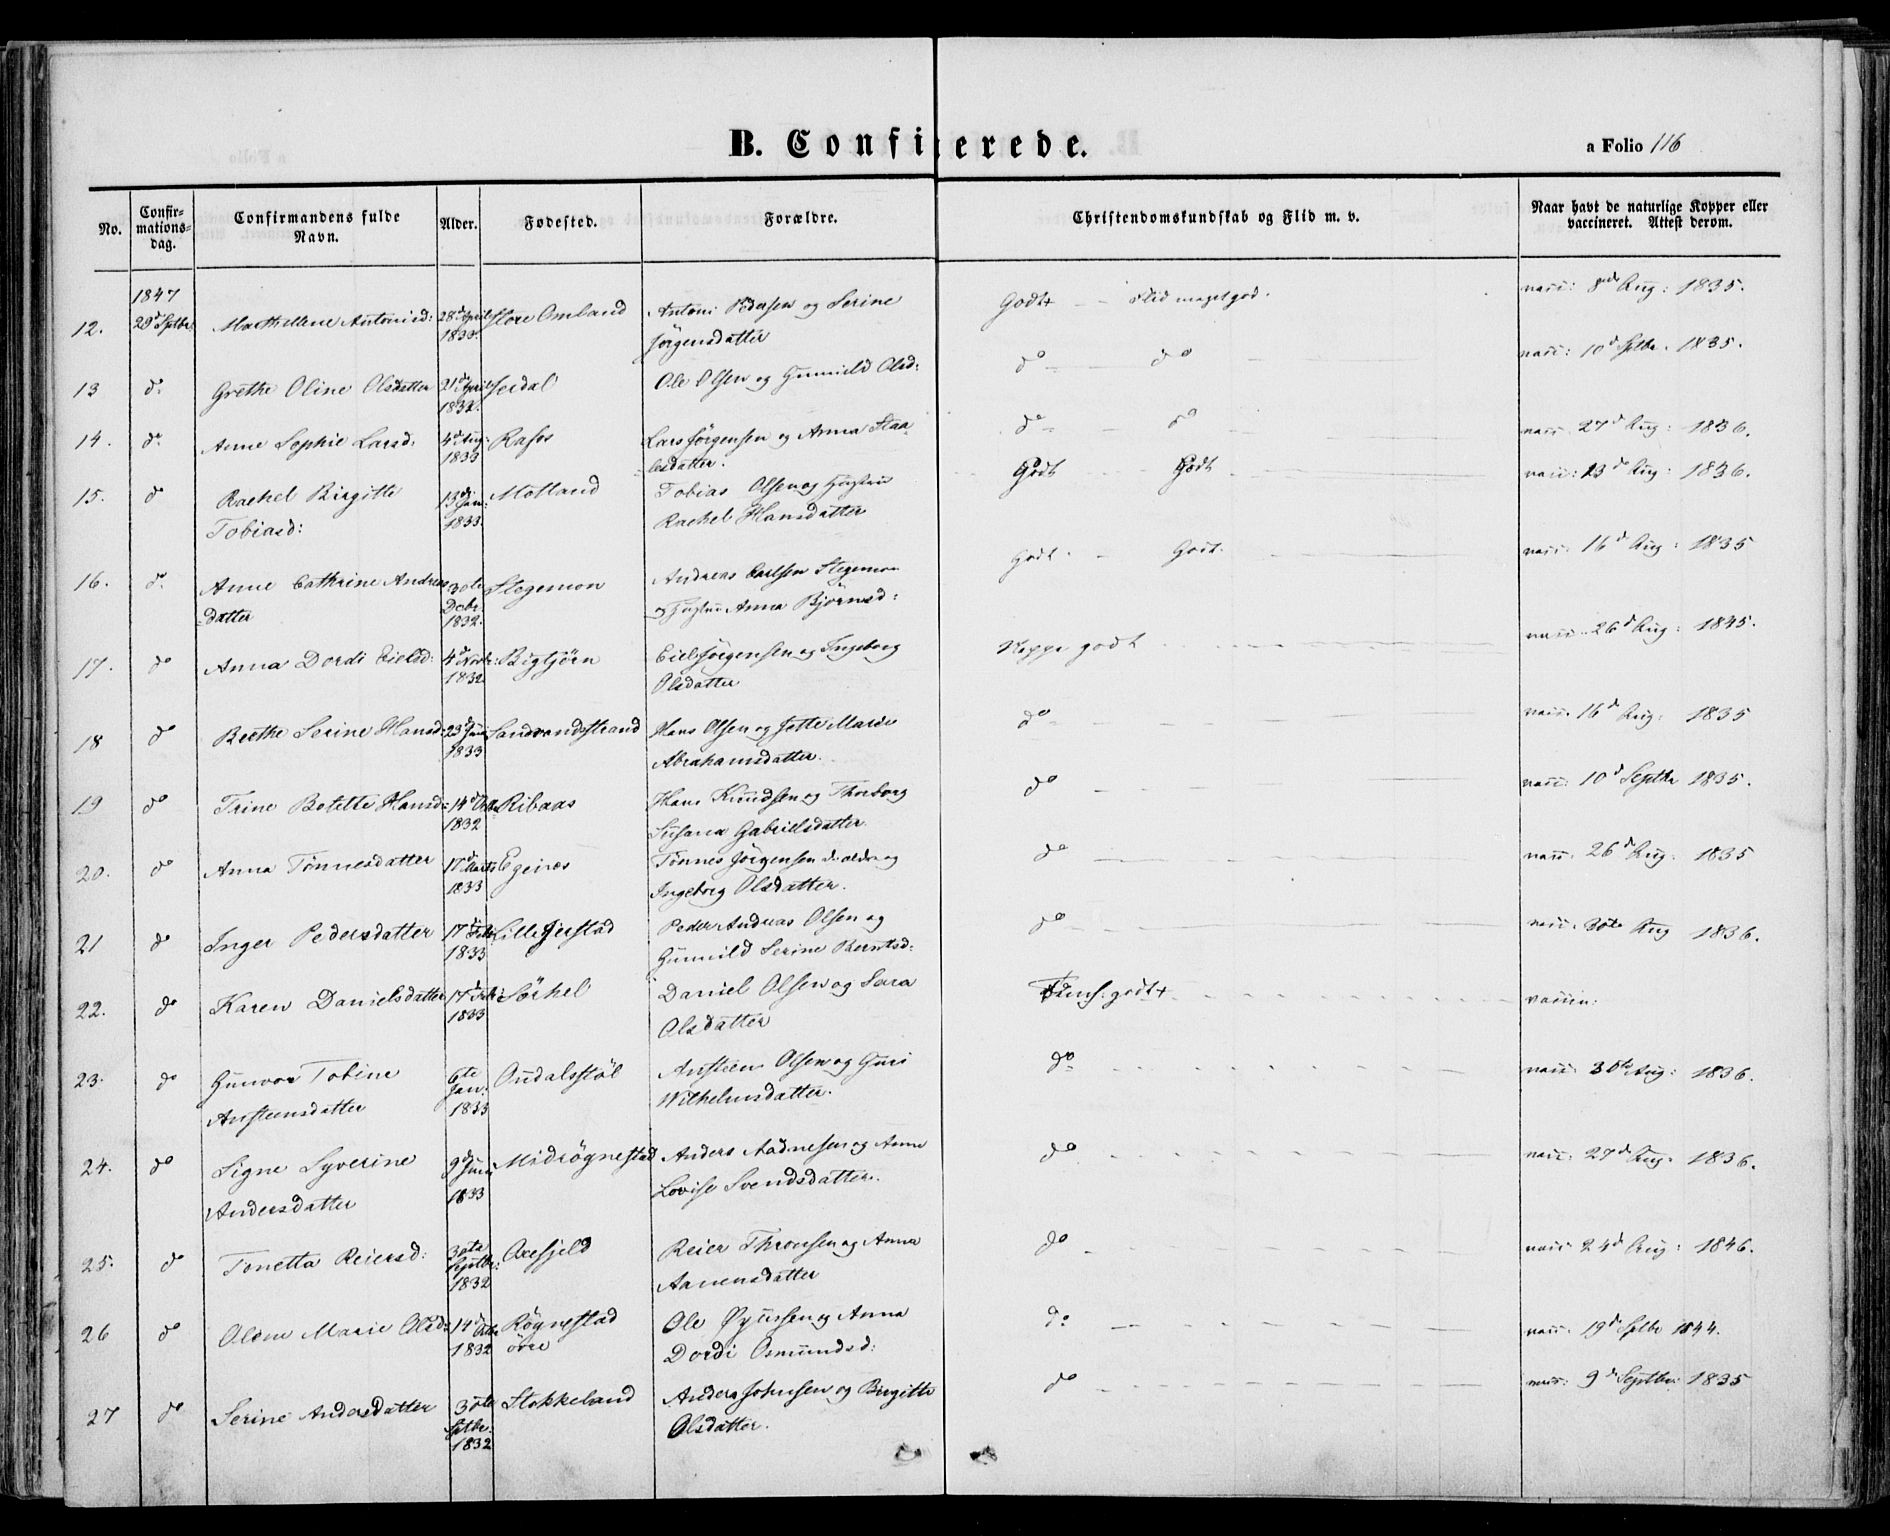 B. Confirmerede.
a Folio 116
No.
Confir-
mations-
dag.
Confirmandens fulde
Navn.
Alder.
Fødested.
Forældre.
Christendomskundskab og Flid m. v.
Naar havt de naturlige Kopper eller
vaccineret. Attest derom.
1847
12. 29d Sptbr Marthe Antonisd: 28d April 1833. Store Omland Antoni Pedersen og Serine
Jörgensdatter
Godt+ Flid meget god. vacc: Aug: 1835.
13 do Grethe Oline Olsdatter 21d April 1832. Ole Olsen og Gunnild Olsd:
do do vacc: 10d Sptbr. 1835.
14. do Anne Sophie Larsd: 4d Aug: 1833 Rafos Lars Jörgensen og Anna Staa-
lesdatter.
do do vacc: 27d Aug: 1836.
15. do Rachel Birgitte 13de Jan: 1833. Motland Tobias Olsen og Hustru
Tobiasd: Rachel Hansdatter
Godt Godt vacc: 13d Aug: 1836.
16. do Anne Cathrine Andreas- 30te Dcbr 1832. Stegemon Andreas Carlsen Stegemon
datter Hustru Anna Björnsd:
Godt. Godt. vacc: 16d Aug: 1835
17. do Anna Dordi Eielsd: 4d Novbr: 1832 Bigtjörn Eiel Jörgensen og Ingeborg
Olsdatter
Neppe godt vacc: 26d Aug: 1845.
18 do Berthe Serine Hansd: 23d 1833 Sandvandstrand Hans Olsen og Jette Marie
Abrahamsdatter.
do vacc. 16d Aug: 1835
19 do Trine Botette Hansd: 14d Octb 1832 Ribaas Hans Knudsen og Thorborg
Susana Gabrielsdatter.
do vacc: 10d Septbr 1835.
20. do Anna Tönnesdatter 17d Marts 1833 Egenes Tönnes Jörgensen d: ældre og
Ingeborg Olsdatter.
do vacc: 26d Aug: 1835
21 do Inger Pedersdatter 17d Feb: 1833 Lille Jerstad Peder Andreas Olsen og
Gunnild Serine Berntsd:
do vacc: 30te Aug 1836.
22. do Karen Danielsdatter 17d Feb: 1833 Sörhel Daniel Olsen og Sara
Olsdatter
godt+ vaccin:
23. do Gunvor Tobine 6te Jan: 1833 Oudalsstöl Ansteen Olsen og Guri
Ansteensdatter Wilhelmsdatter.
do vacc: 30te Aug: 1836.
24. do Signe Syverine 9d 1833 Midrögnestad Anders Aadnesen og Anne
Andersdatter Lovise Svendsdatter.
do vacc: 27d Aug. 1836.
25. do Tonetta Reiersd: 30te Septbr: 1832 Oxefjeld Reier Thronsen og Anna
Aanensdatter
do vacc: 24d Aug: 1846.
26 do Marie Olsd: 14d Octb 1832 Rögnestad Ole og Anna
övre Dordi Osmundsd:
do vacc. 19d Sptbr 1844.
27 do Serine Andersdatter 30te Sptbr. 1832 Stokkeland Anders Johnsen og Birgitte
Olsdatter.
do vacc: 9d Septbr 1835